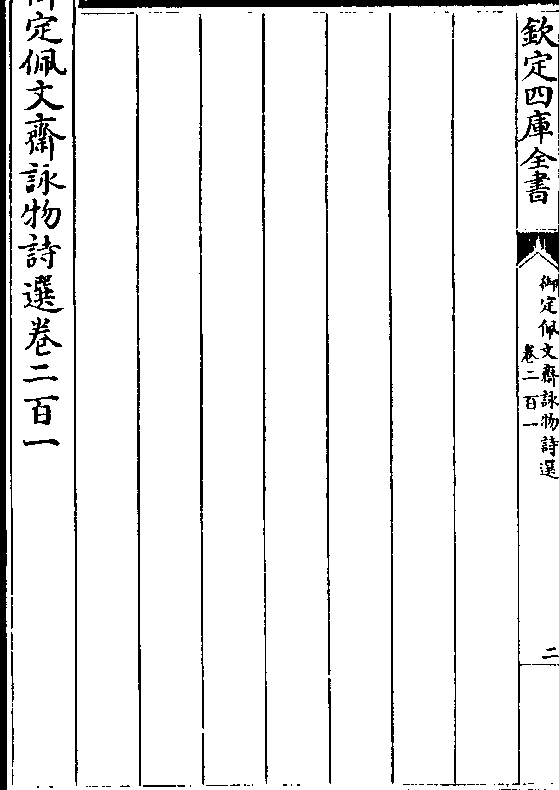 欽定四庫全書
御定佩文齋詠物詩選
卷二百一
二
御定佩文齋詠物詩選卷二百一